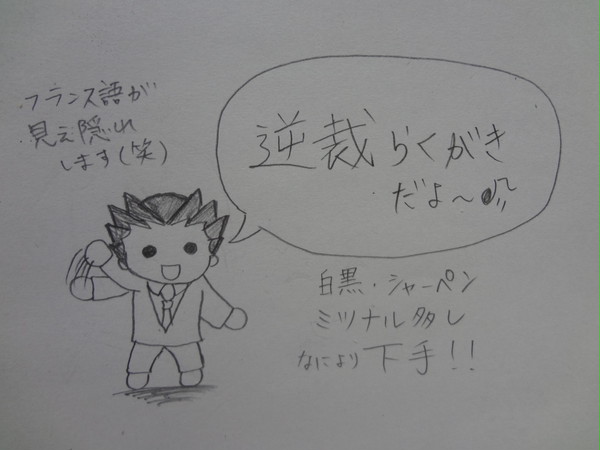 フランス語が
見え隠れ
します(笑)
逆裁らくがき
だよ～♪
白黒・シャーペン
ミツナル多し
なにより下手!!